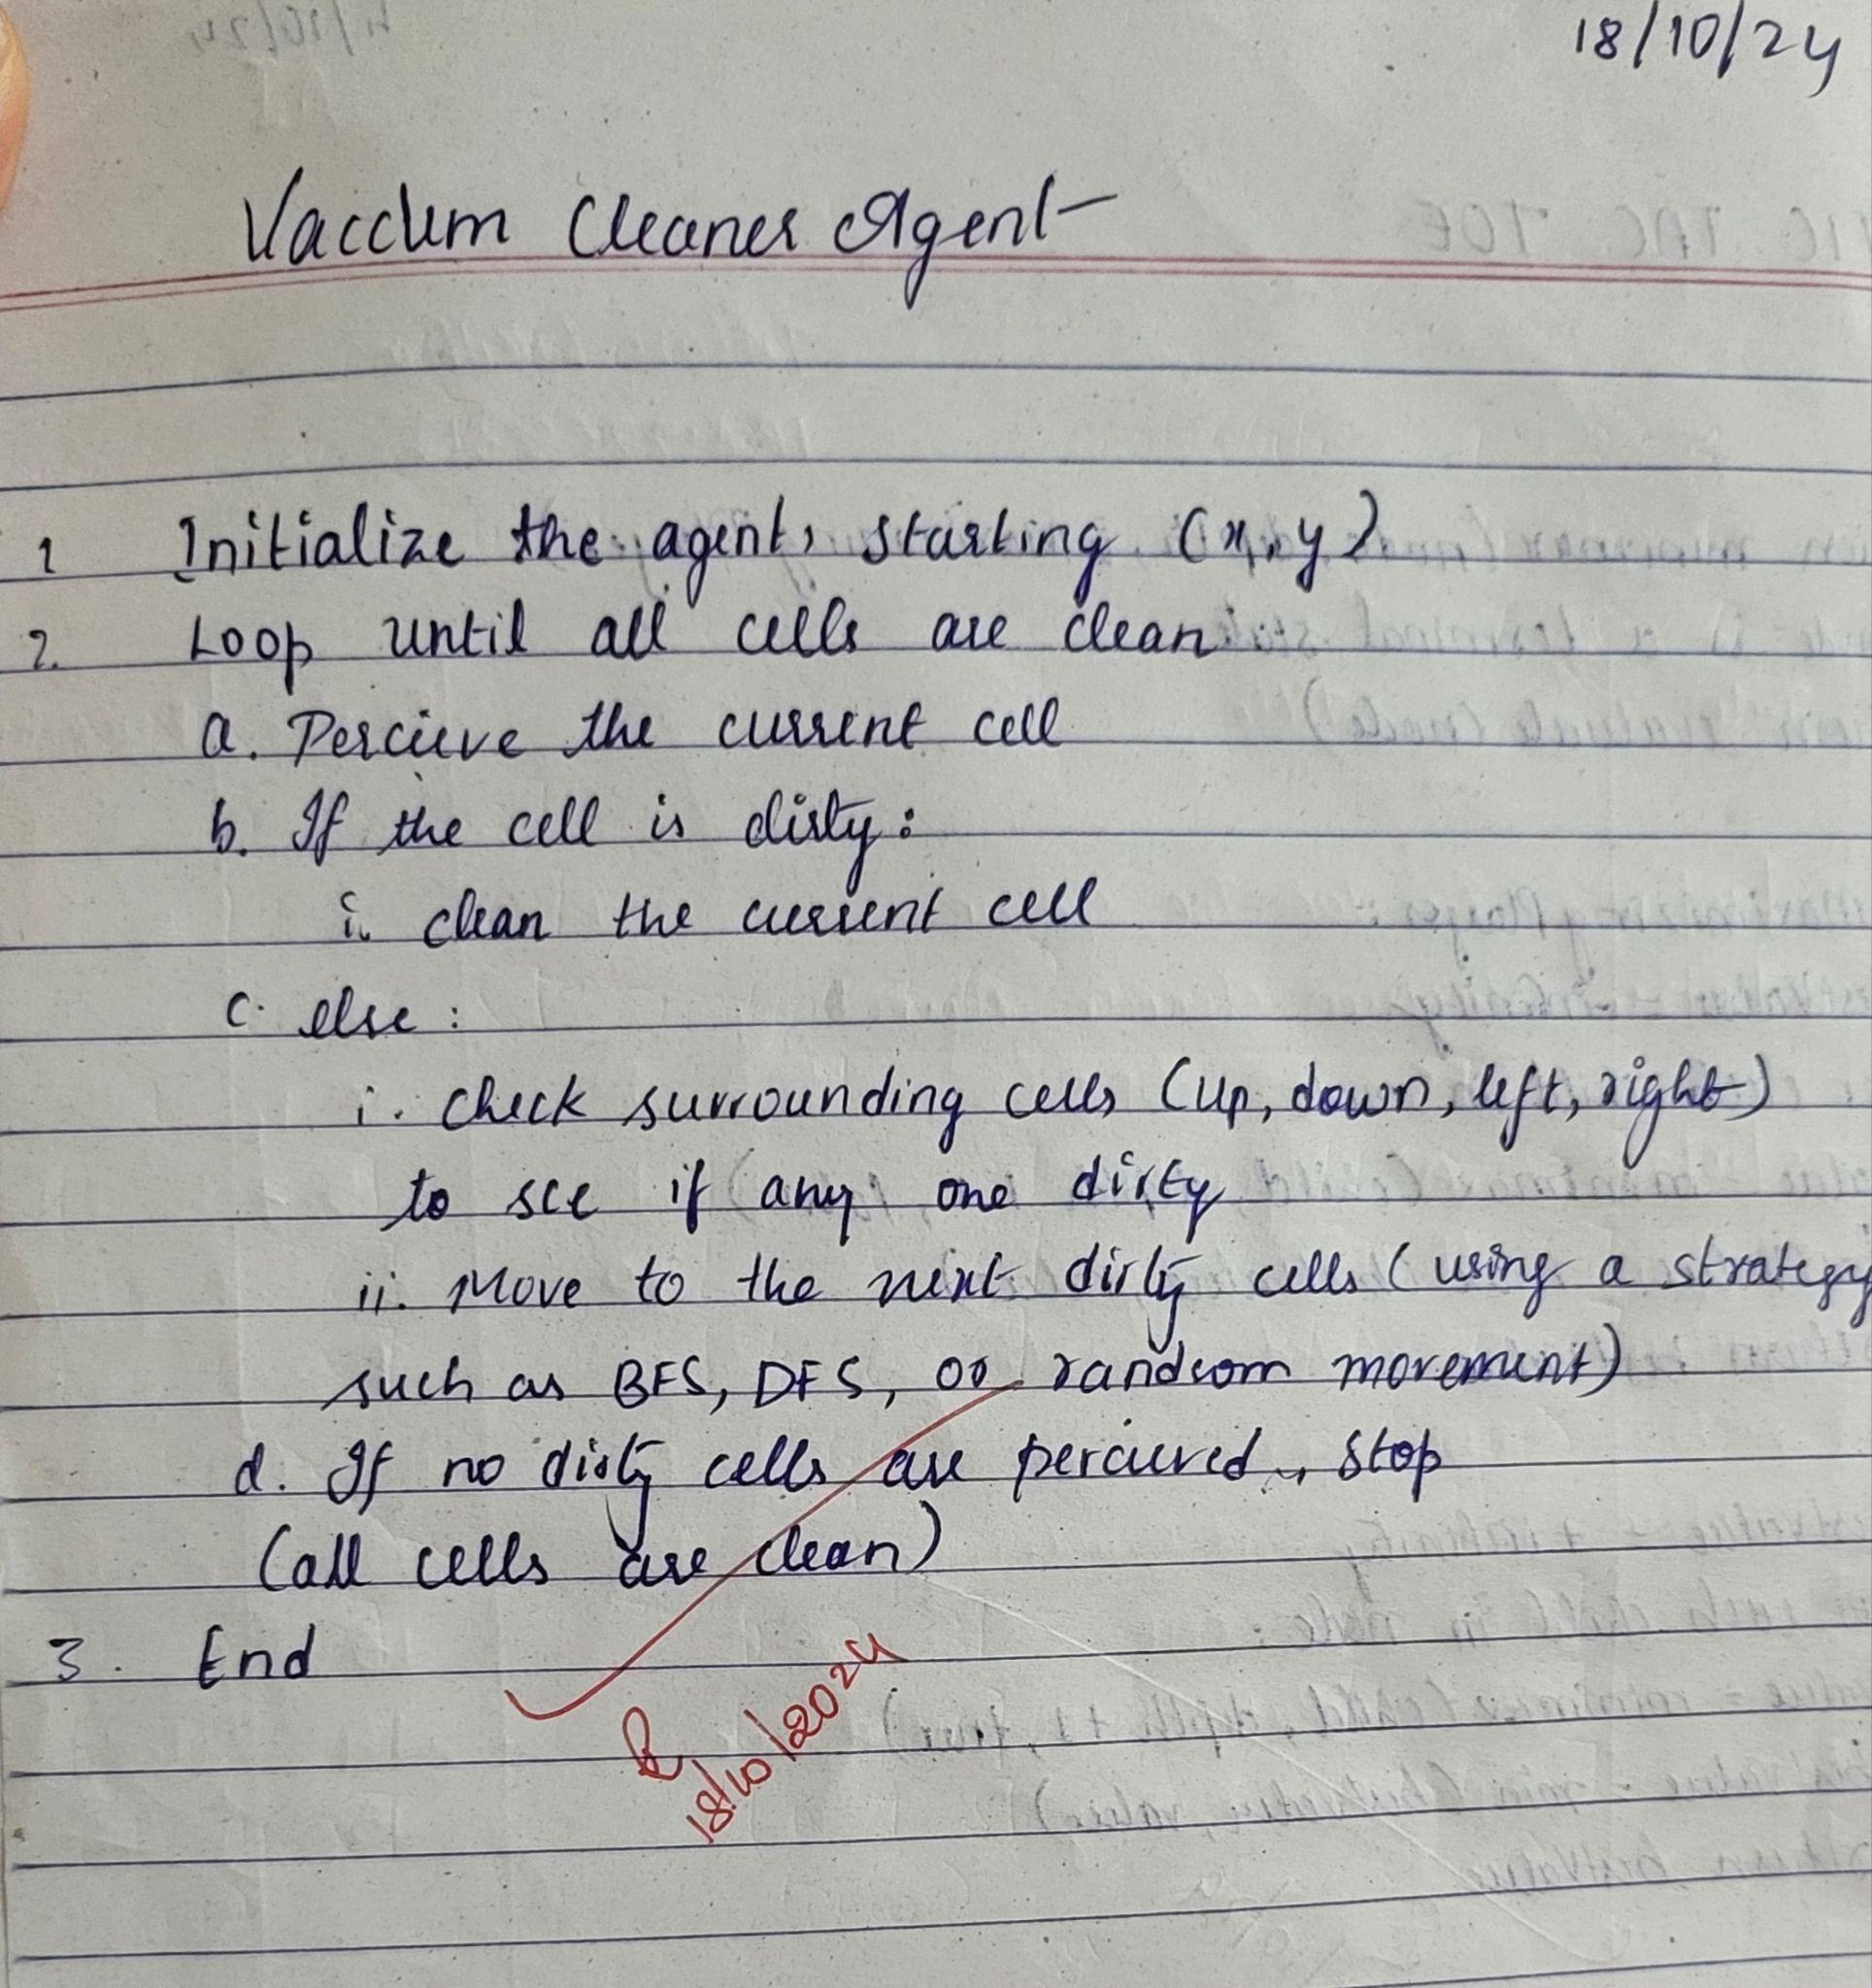 18/10/24
Vaccum Cleaner Agent
1 Initialize the agent, starting (x, y)
2. Loop until all cells are clean
a. Percieve the current cell
b. If the cell is dirty:
i. clean the current cell
c. else:
i. check surrounding cells (up, down, left, right)
to see if any one dirty
ii. Move to the next dirty cells (using a strategy
such as BFS, DFS, or random movement)
d. If no dirty cells are percieved, stop
(all cells are clean)
3. End
18/10/2024